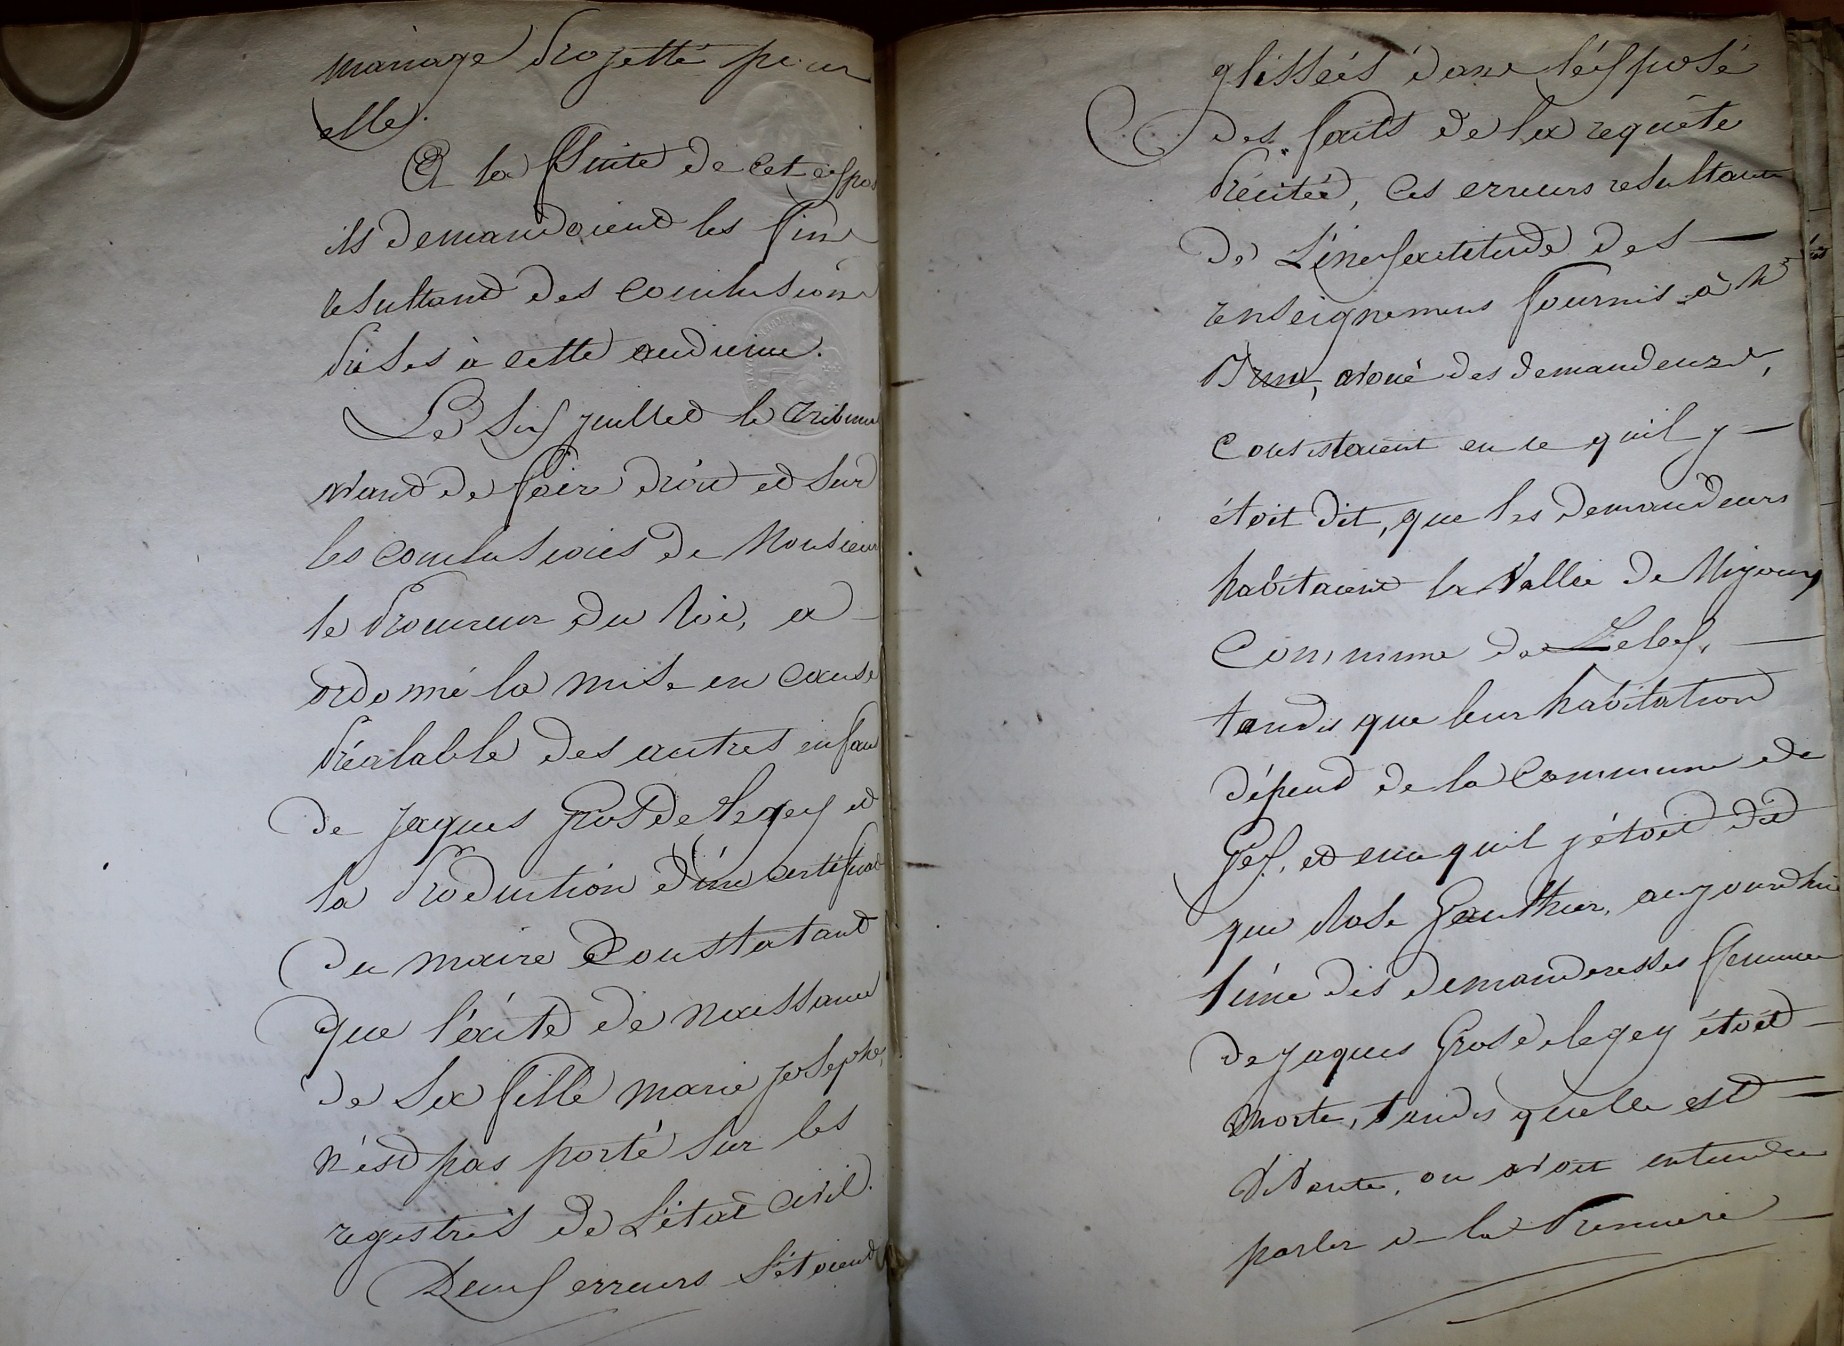 mariage projetté pour
elle.
A la suite de cet expos
ils demandoient les fins
resultant des conclusions
prises à cette audience.
Le six juillet le tribunal
avant de faire droit et sur
les conclusions de Monsieur
le procureur du Roi, a
ordonné la mise en cause
préalable des autres enfan
de Jaques Grosdelegey et
la production d'un certificat
du maire Constatant
que l'acte de naissance
de sa fille marie josephe,
n'est pas porté sur les
registres de l'état civil.
Deux erreurs s'étoient
glissées dans l'exposé
des faits de la requête
précitée, Ces erreurs resultant
de l'inexactitude des
renseignemens fournis à Me
avoué des demandeurs,
Consistaient en ce qu'il y
étoit dit, que les demandeurs
habitaient la Vallée de Mijoux
Commune de Lelex,
tandis que leur habitation
dépend de la Commune de
Gex, et en ce quil y étoit dit
que Rose Gauthier, aujourdhui
l'une des demanderesses femme
de Jaques Grosdelegey étoit
morte, tandis quelle est
vivante, on avoit entendu
parler de la Premiere